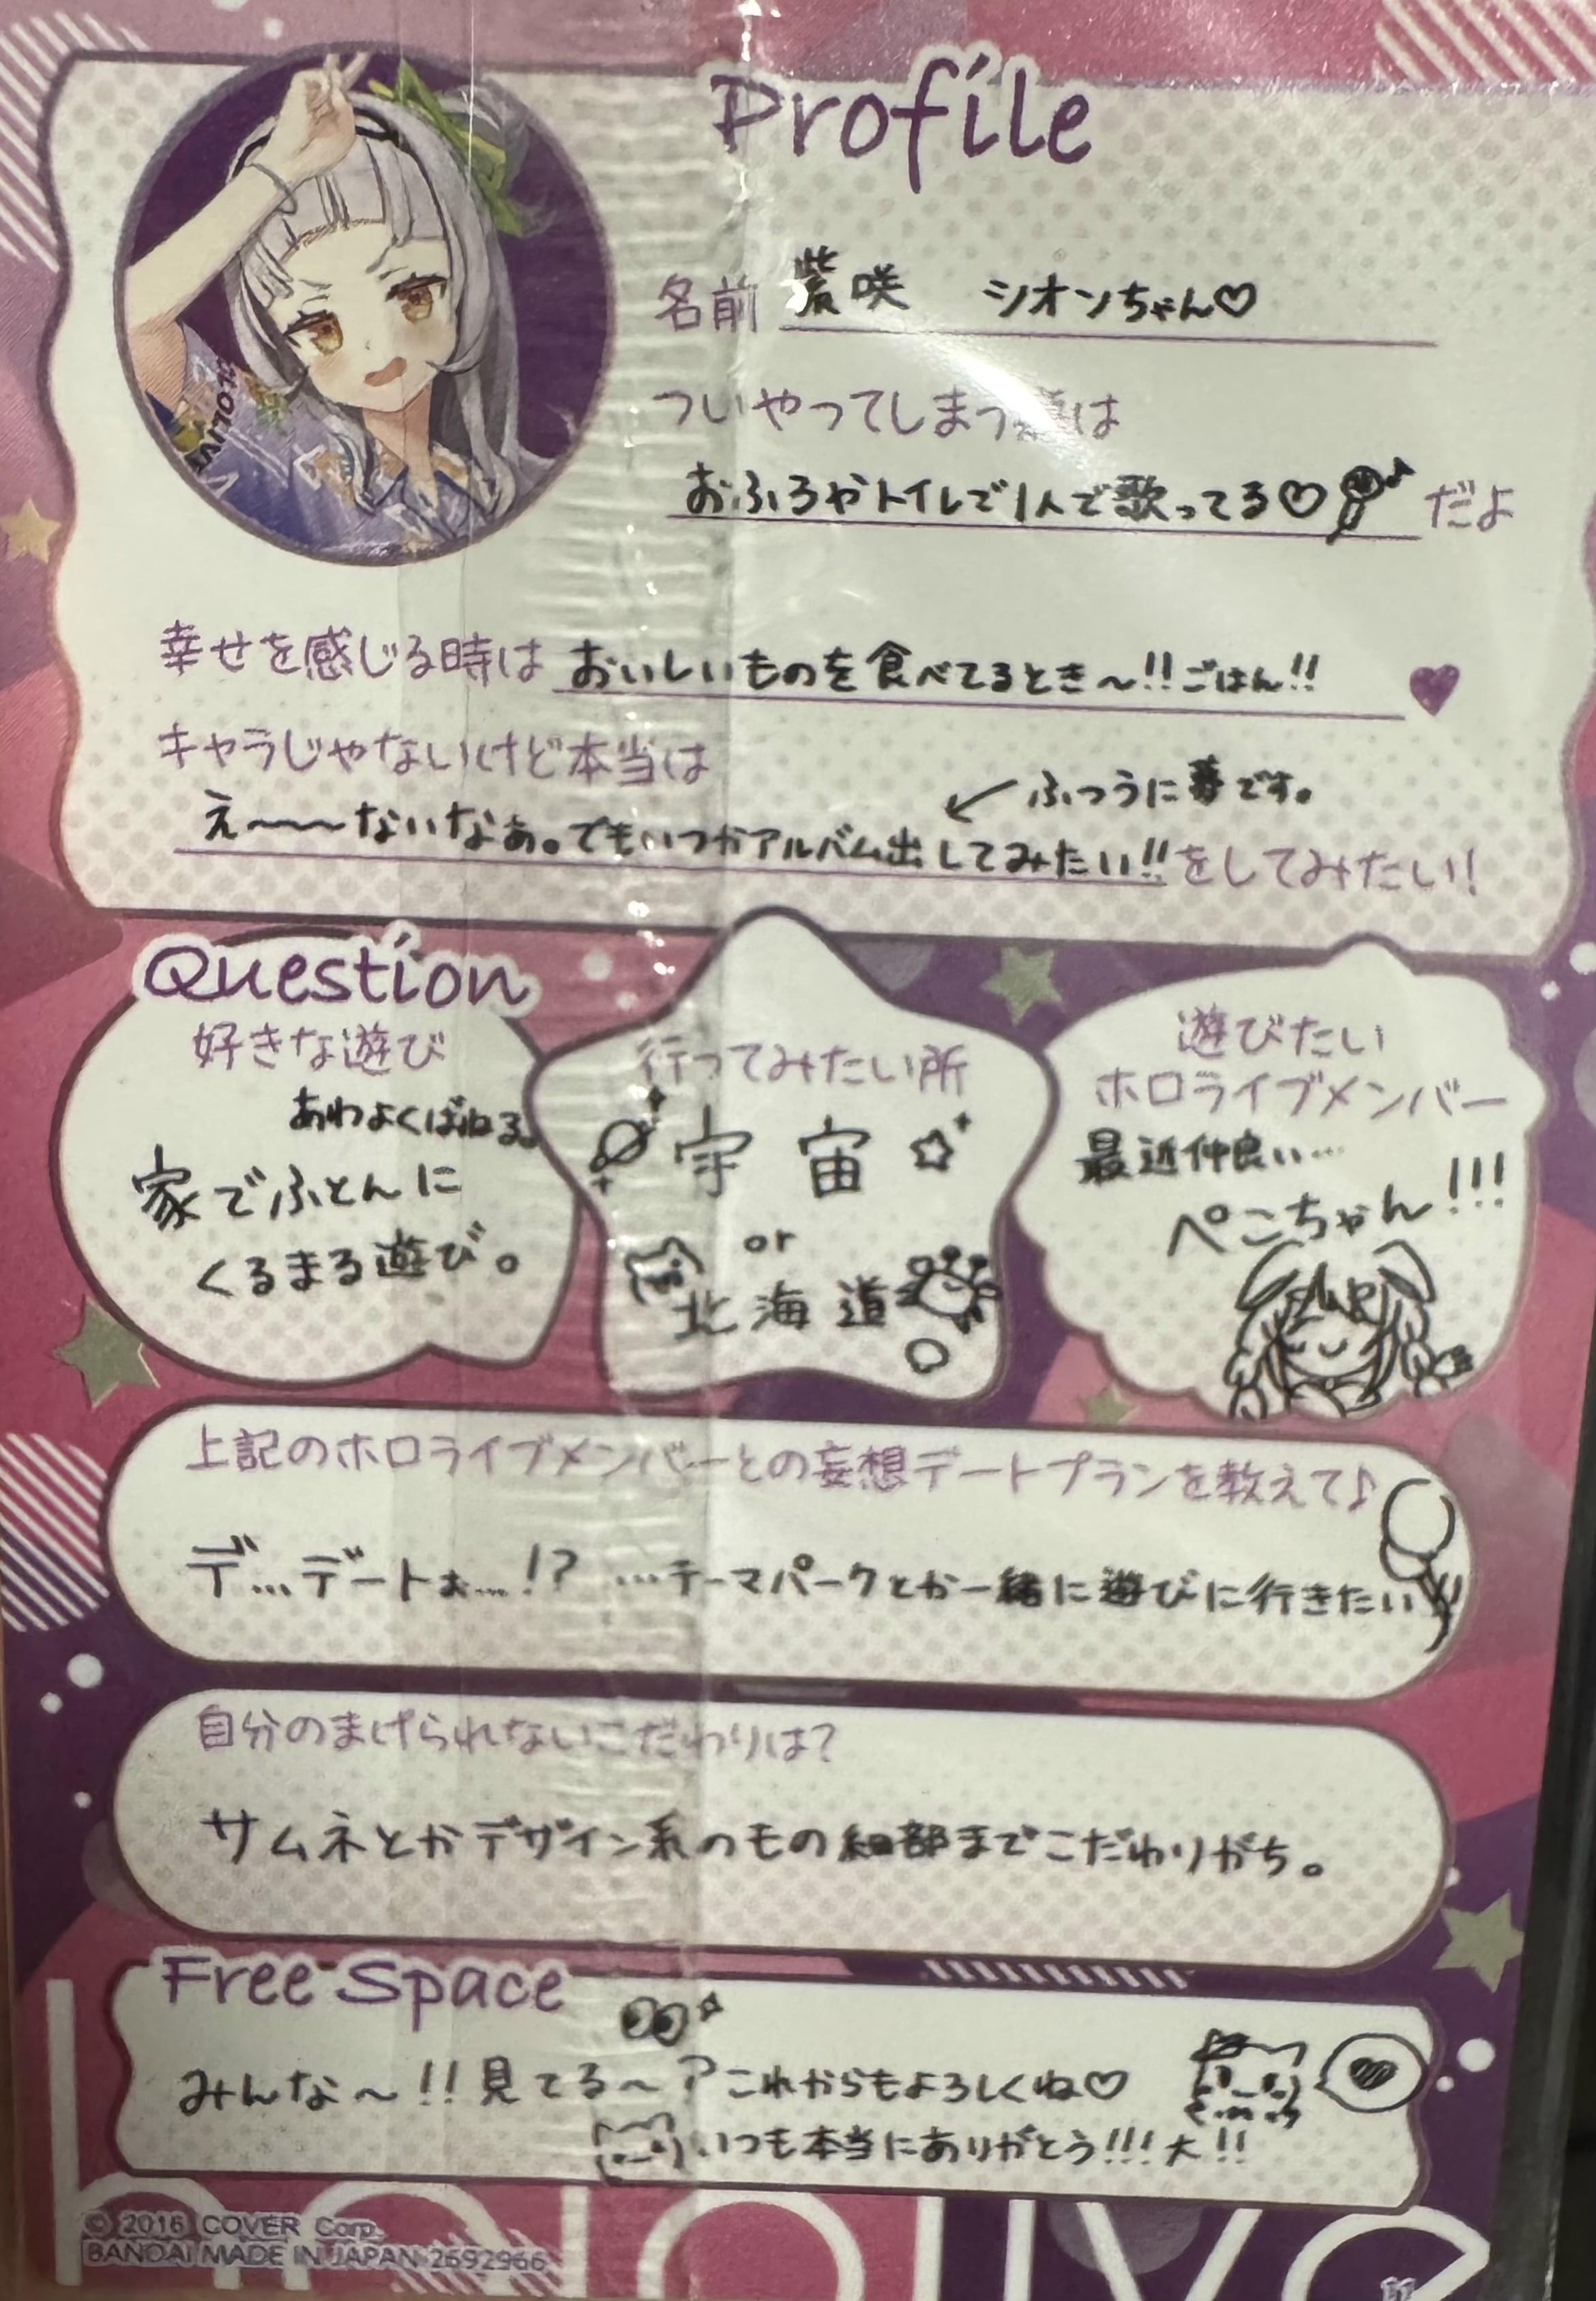 Profile
名前 紫咲 シオンちゃん♡
ついやってしまう事は
おふろやトイレで1人で歌ってる♡ だよ
幸せを感じる時は おいしいものを食べてるとき〜!!ごはん!!
キャラじゃないけど本当は
← ふつうに夢です。
え〜〜〜ないなぁ。でもいつかアルバム出してみたい!! をしてみたい!
Question
好きな遊び
あわよくばねる。
家でふとんに
くるまる遊び。
行ってみたい所
宇宙
or
北海道
遊びたい
ホロライブメンバー
最近仲良い…
ぺこちゃん!!!
上記のホロライブメンバーとの妄想デートプランを教えて♪
デ…デートぉ…!? …テーマパークとか一緒に遊びに行きたい
自分のまげられないこだわりは?
サムネとかデザイン系のもの細部までこだわりがち。
Free Space
みんな〜!!見てる〜?これからもよろしくね♡
いつも本当にありがとう!!!大!!
© 2016 COVER Corp.
BANDAI MADE IN JAPAN 2692966
hololive
HOLOLIVE